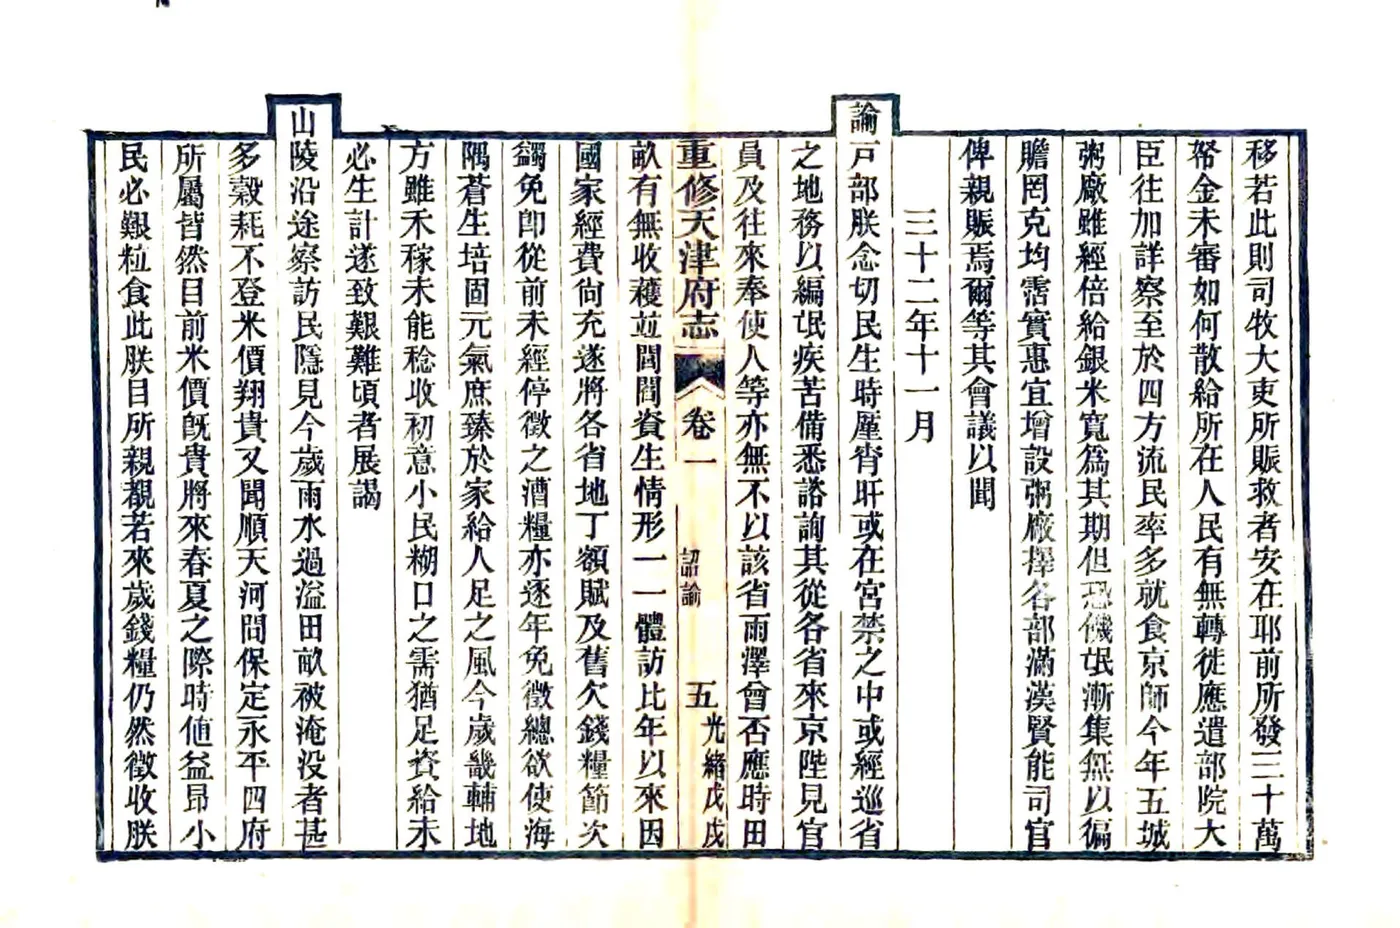 移若此則司牧大吏所賑救者安在耶前所發三十萬
帑金未審如何散給所在人民有無轉徙應遣部院大
臣往加詳察至於四方流民率多就食京師今年五城
粥廠雖經倍給銀米寬爲其期但恐饑氓漸集無以徧
贍罔克均霑實惠宜增設粥廠擇各部滿漢賢能司官
俾親賑焉爾等其會議以聞
三十二年十一月
諭戸部朕念切民生時厪宵旰或在宮禁之中或經巡省
之地務以編氓疾苦備悉諮詢其從各省來京陛見官
員及往來奉使人等亦無不以該省雨澤曾否應時田
重修天津府志 卷一 詔諭 五 光緒戊戌
畝有無收穫竝閭閻資生情形一一體訪比年以來因
國家經費尙充遂將各省地丁額賦及舊欠錢糧節次
蠲免卽從前未經停徵之漕糧亦逐年免徵總欲使海
隅蒼生培固元氣庶臻於家給人足之風今歲畿輔地
方雖禾稼未能稔收初意小民糊口之需猶足資給未
必生計遂致艱難頃者展謁
山陵沿途察訪民隱見今歲雨水過溢田畝被淹没者甚
多穀耗不登米價翔貴又聞順天河間保定永平四府
所屬皆然目前米價旣貴將來春夏之際時値益昂小
民必艱粒食此朕目所親覩若來歲錢糧仍然徵收朕